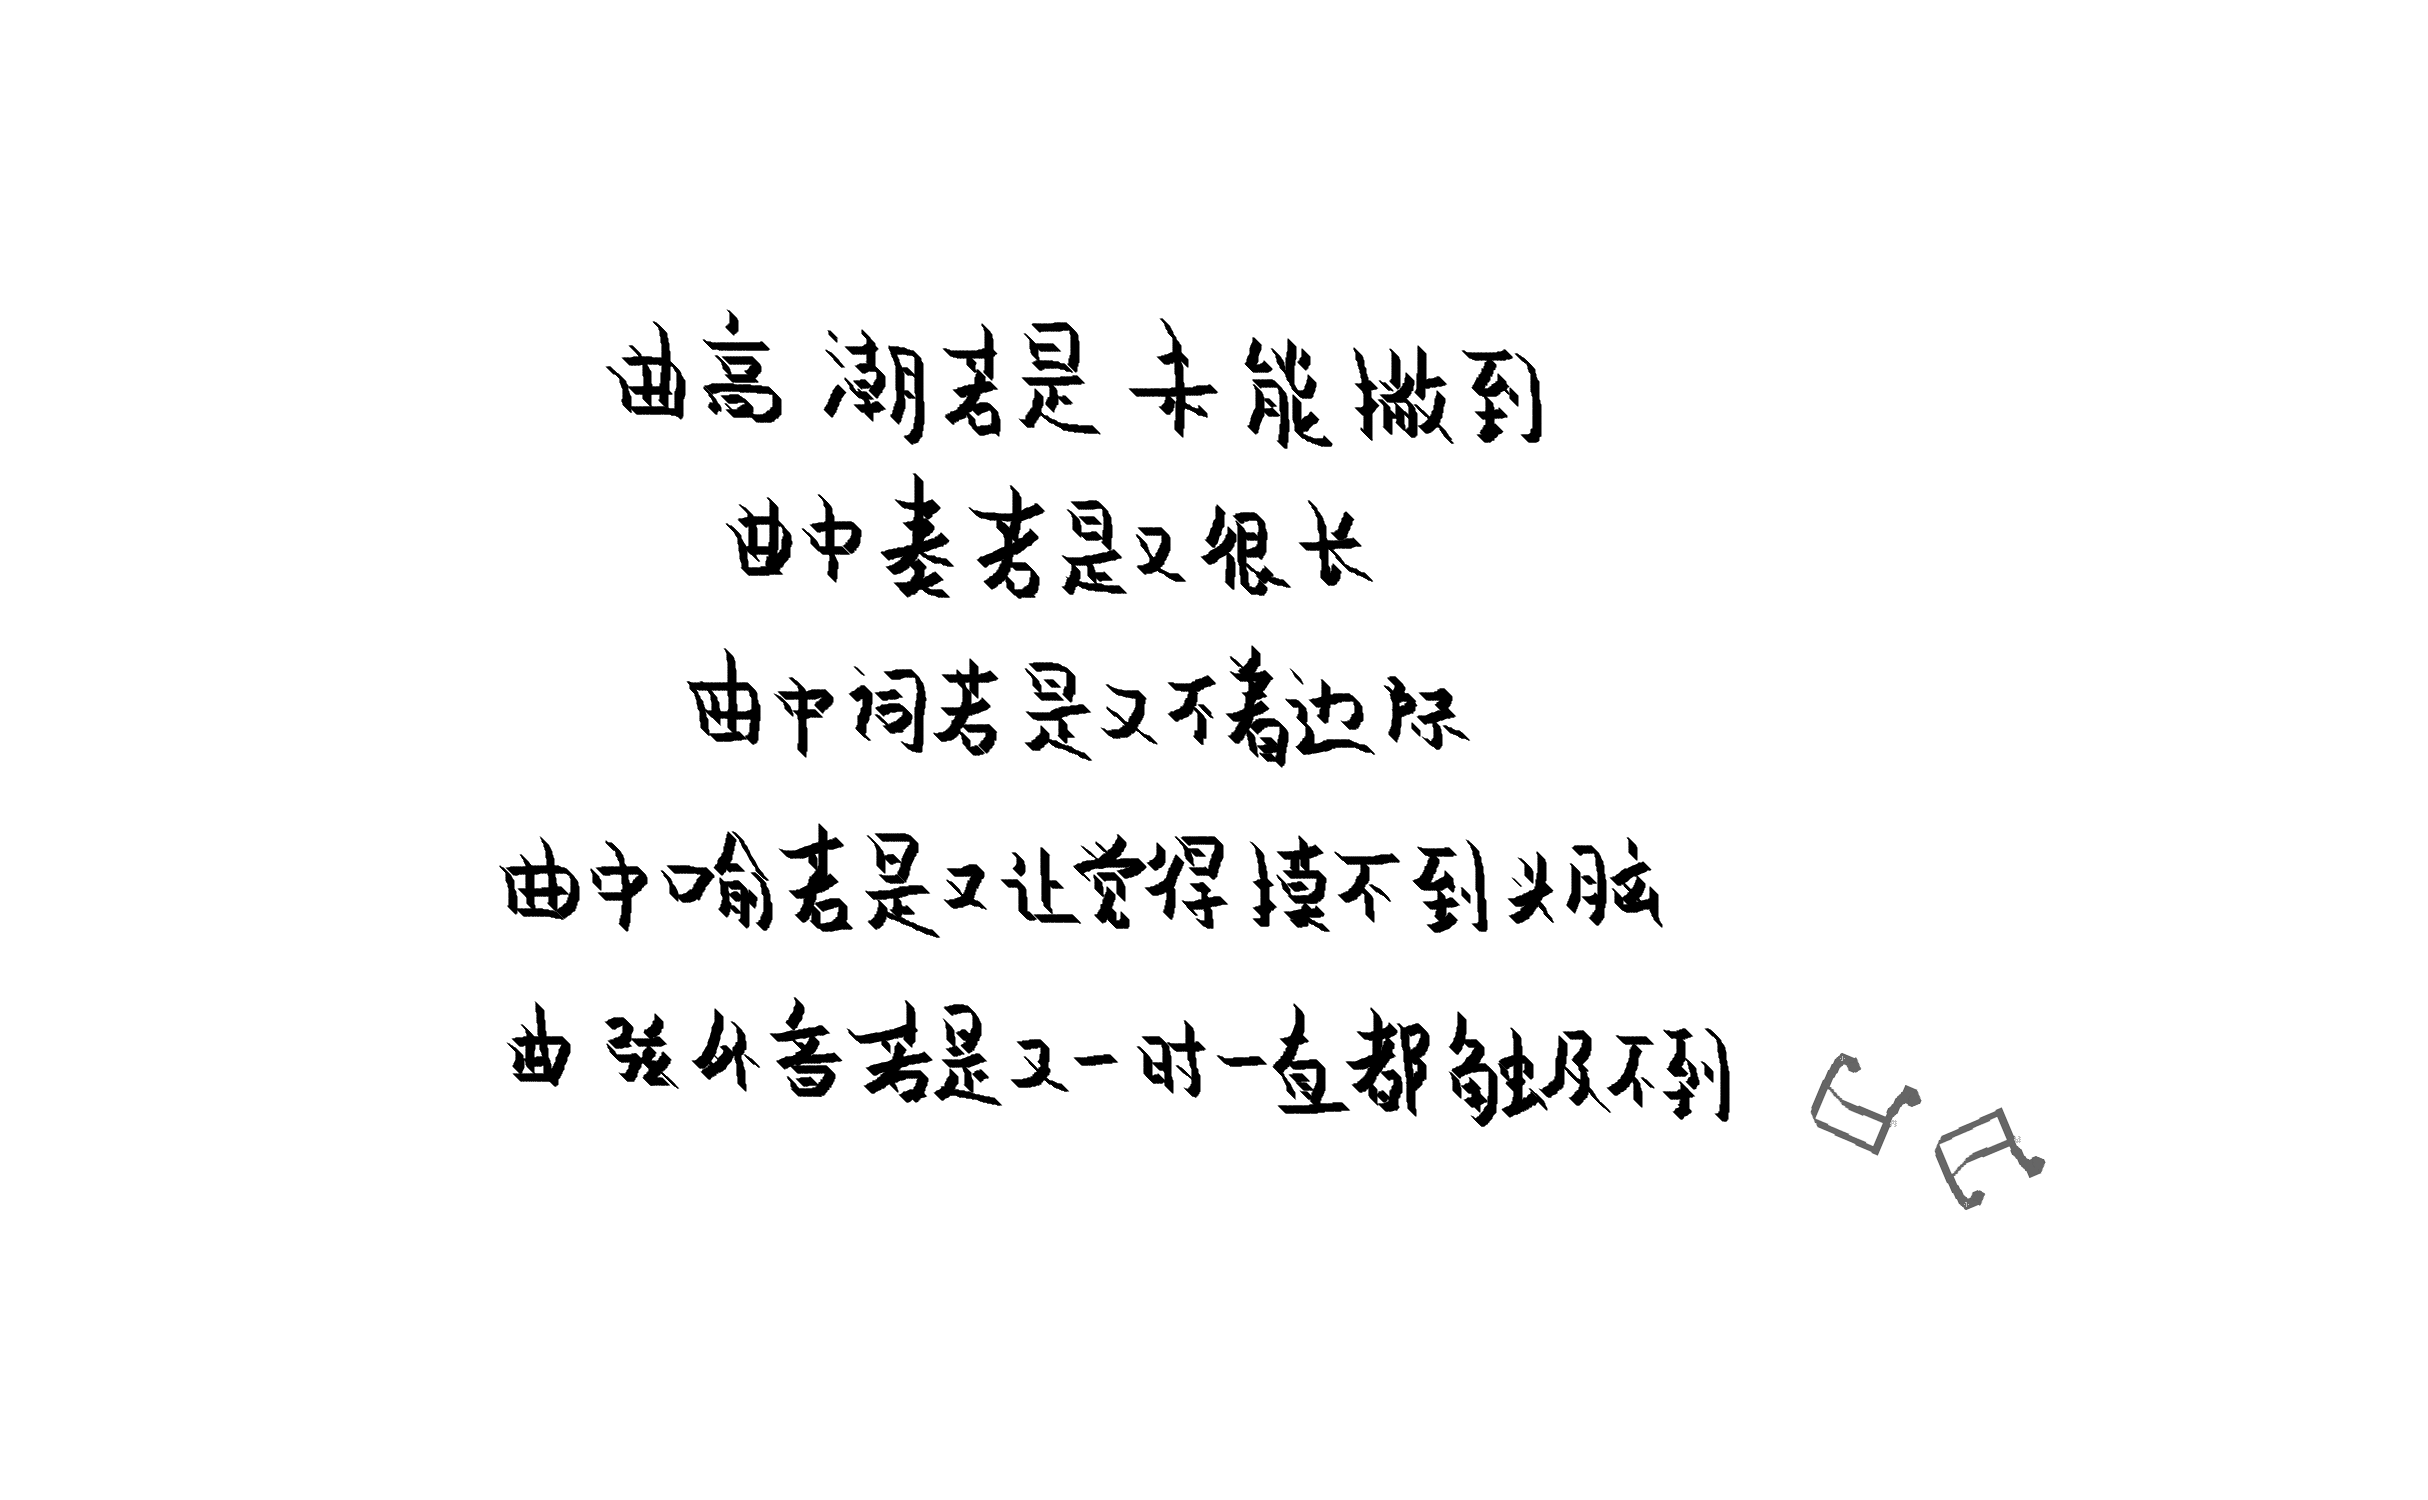 曲高 潮若是 未能做到
曲中表若是又很长
曲中间若是又不着边际
曲中 偷若是又让觉得摸不到头脑
曲 尾 若是又一时 一直都 不到